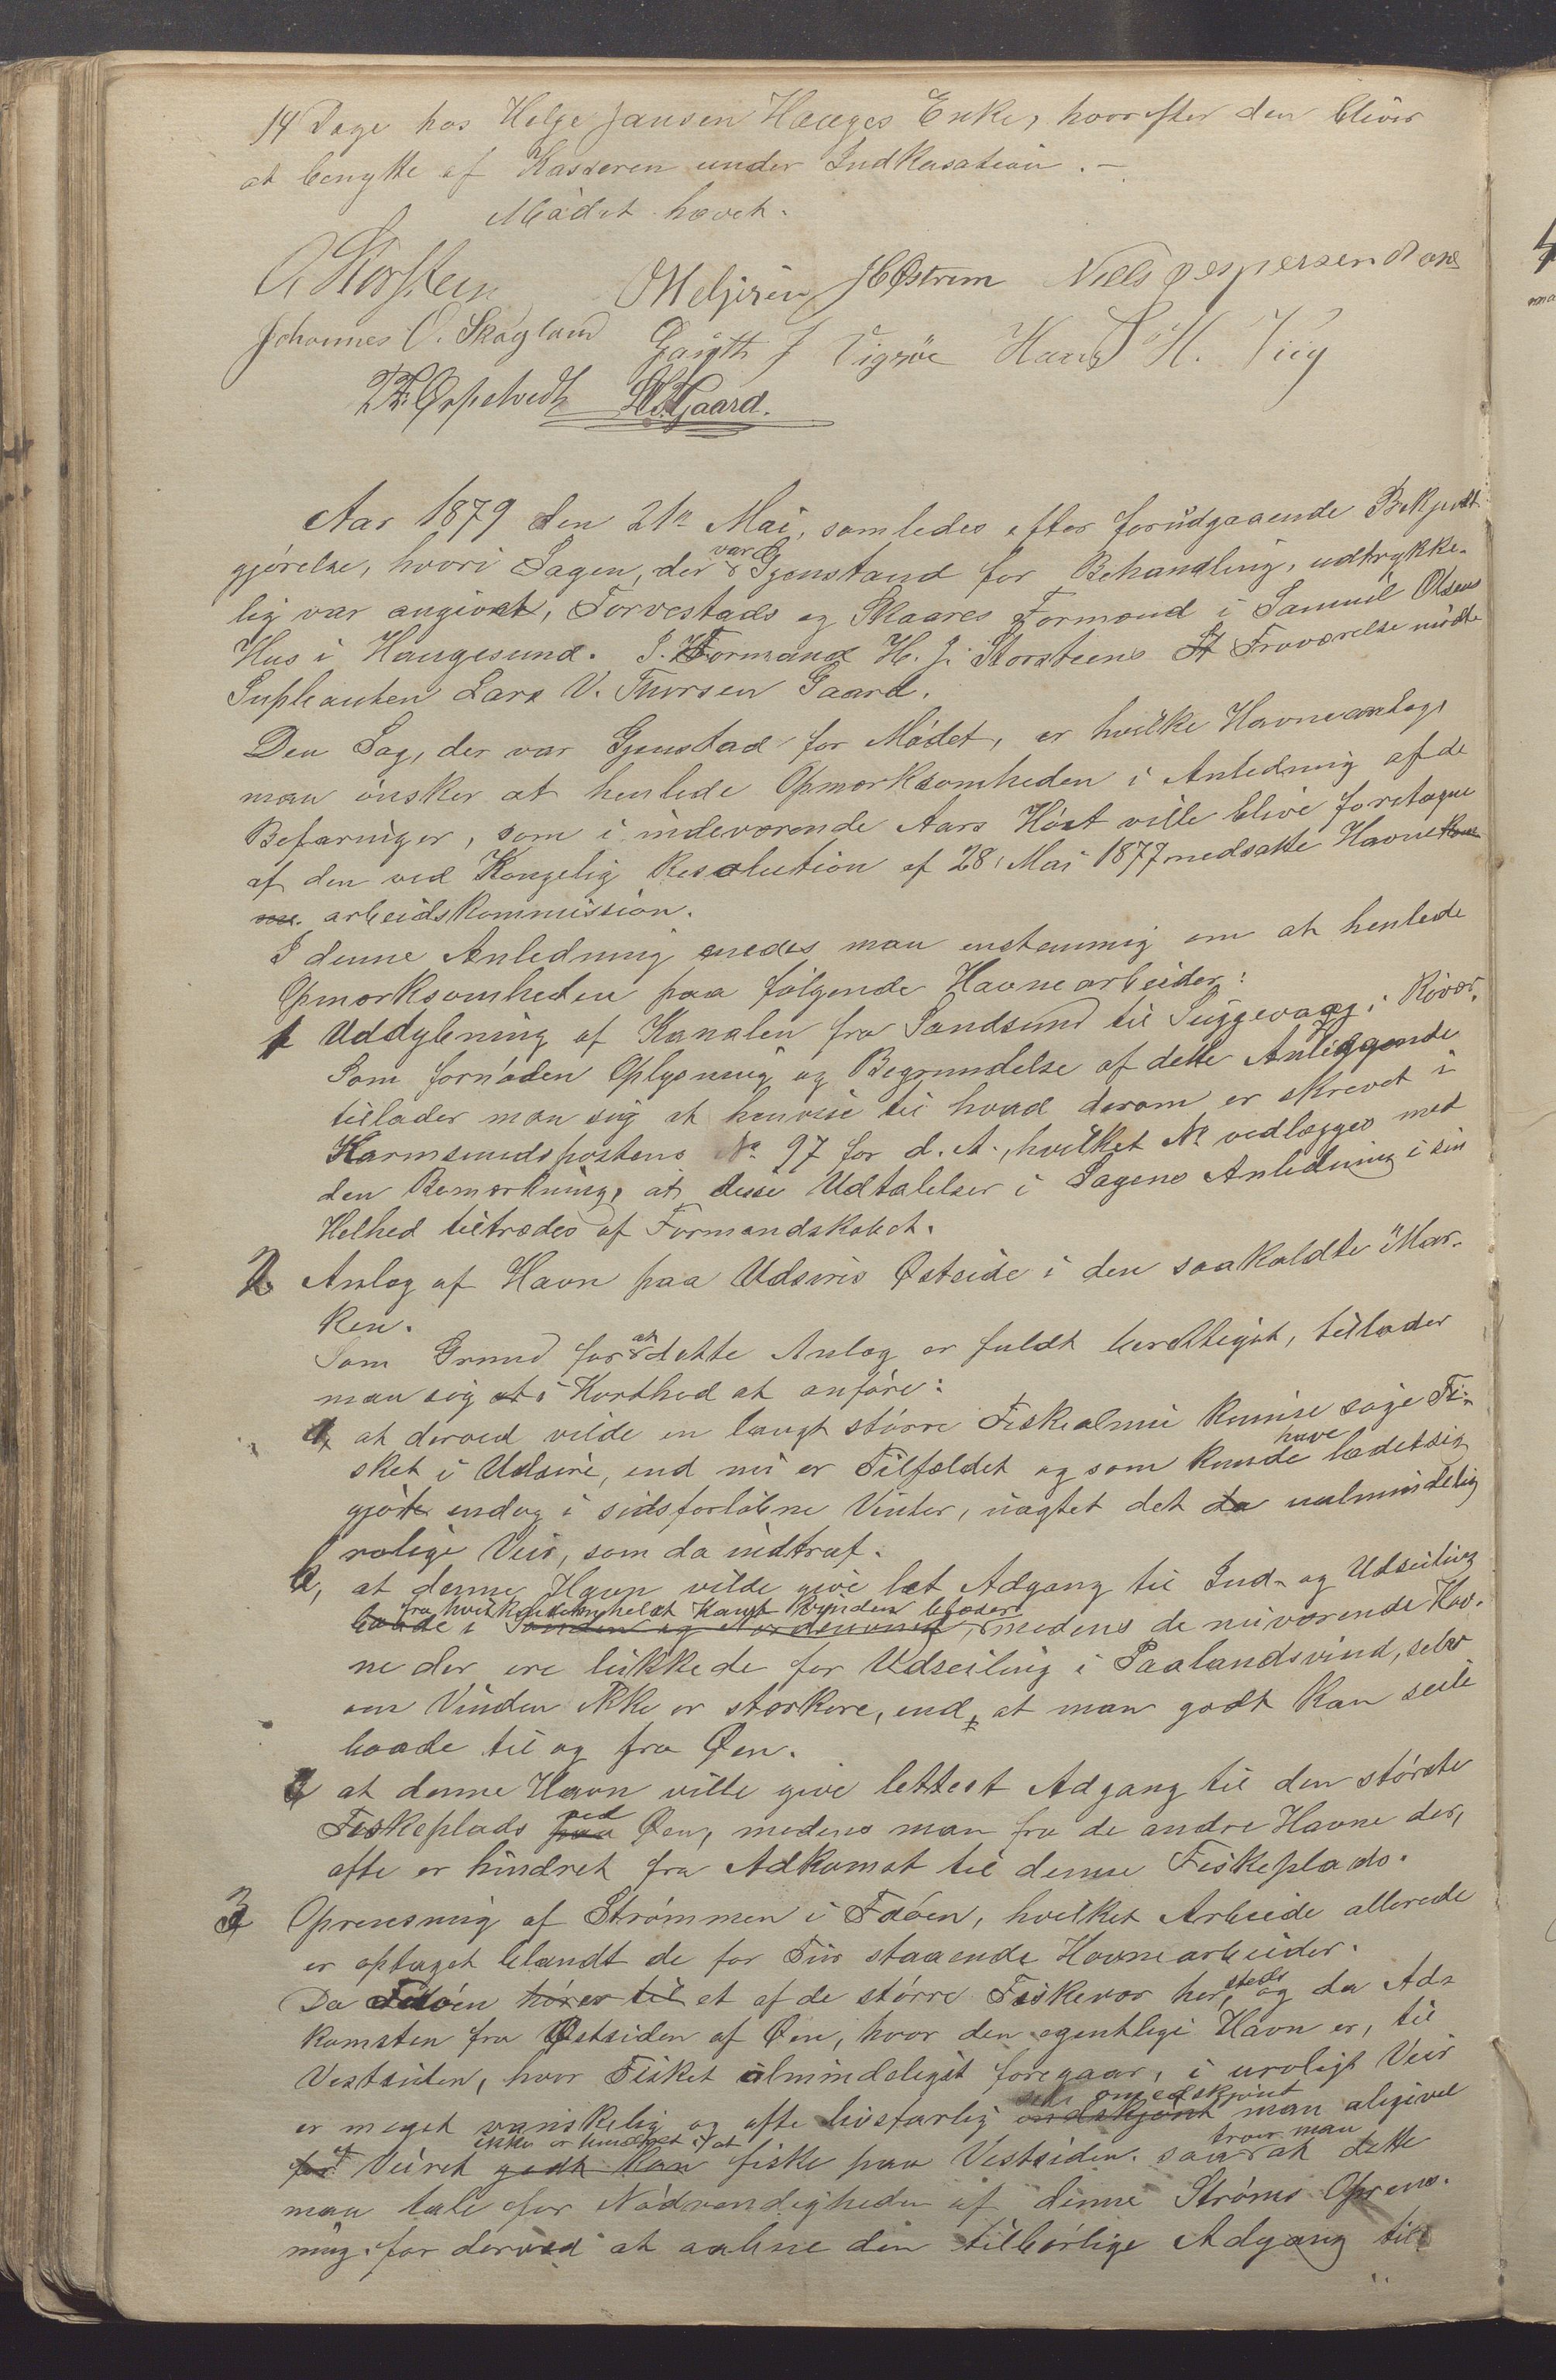 14 Dage hos Helge Jansen Hauges Enke, hvorefter den bliver
at benytte af Kasseren under Indkasation. —
Mødet hævet.
O. Storsteen O Meljeren J C Østrem Niels Jespersen
Johannes O. Skagland Gauth J Vigsøe Hans H.
L. V. T. Gaard.
Aar 1879 den 21de Mai, samledes efter forudgaaende Bekjendt-
gjørelse, hvori Sagen, der var Gjenstand for Behandling, udtrykke-
lig var angivet, Torvestads og Skaares Formænd i Samuel Olsens
Hus i Haugesund. I Formand H. J. Storsteens Fraværelse mødte
Supleanten Lars V. Thorsen Gaard.
Den Sag, der var Gjenstad for Mødet, er hvilke Havneanlæg,
man ønsker at henlede Opmærksomheden i Anledning af de
Befaringer, som i indeværende Aars Høst ville blive foretagne
af den ved Kongelig Resolution af 28 Mai 1877 nedsatte Havne
arbeidskommission.
I denne Anledning enedes man enstemmig om at henlede
Opmærksomheden paa følgende Havnearbeider:
1 Uddybning af Kanalen fra Sandsund til Suggevaag i Røvær.
Som fornøden Oplysning og Begrundelse af dette Anliggende
tillader man sig at henvise til hvad derom er skrevet i
Karmsundspostens No 97 for d. A., hvilket No vedlægges med
den Bemærkning, at disse Udtalelser i Sagens Anledning i sin
Helhed tiltrædes af Formandskabet.
2 Anlæg af Havn paa Udsires Østside i den saakaldte "Mar-
ken.
Som Grund for at dette Anlæg er fuldt berettiget, tillader
man sig at i Korthed at anføre:
a, at derved vilde en langt større Fiskealmue kunne søge Fi-
sket i Udsire, end nu er Tilfældet og som kunde have ladet sig
gjøre endog i sidsforløbne Vinter, uagtet det da ualmindelig
rolige Veir, som da indtraf.
b, at denne Havn vilde give let Adgang til Ind- og Udseiling
fra hvilkensomhelst Kant Vinden blæser
baade i Sønden og Nordenvind, medens de nuværende Hav-
ne der ere lukkede for Udseiling i Paalandsvind, selv
om Vinden ikke er stærkere, end at man godt kan seile
baade til og fra Øen.
c at denne Havn ville give lettest Adgang til den største
Fiskeplads paa ved Øen, medens man fra de andre Havne der,
ofte er hindret fra Adkomst til denne Fiskeplads.
3 Oprensning af Strømmen i Fdøen, hvilket Arbeide allerede
er optaget blandt de for Tur staaende Havnearbeider.
Da Fdøen hører til et af de større Fiskevær her, steds og da Ad-
komsten fra Østsiden af Øen, hvor den egentlige Havn er, til
Vestsiden, hvor Fisket almindeligst foregaar, i uroligt Veir
er meget vanskelig og ofte livsfarlig endskjønt man aligivel
ikke er hindret i at troer man
for Veiret godt kan fiske paa Vestsiden. saa at dette
maa tale for Nødvendigheden af denne Strøms Oprens-
ning. for derved at aabne den tilbørlige Adgang til